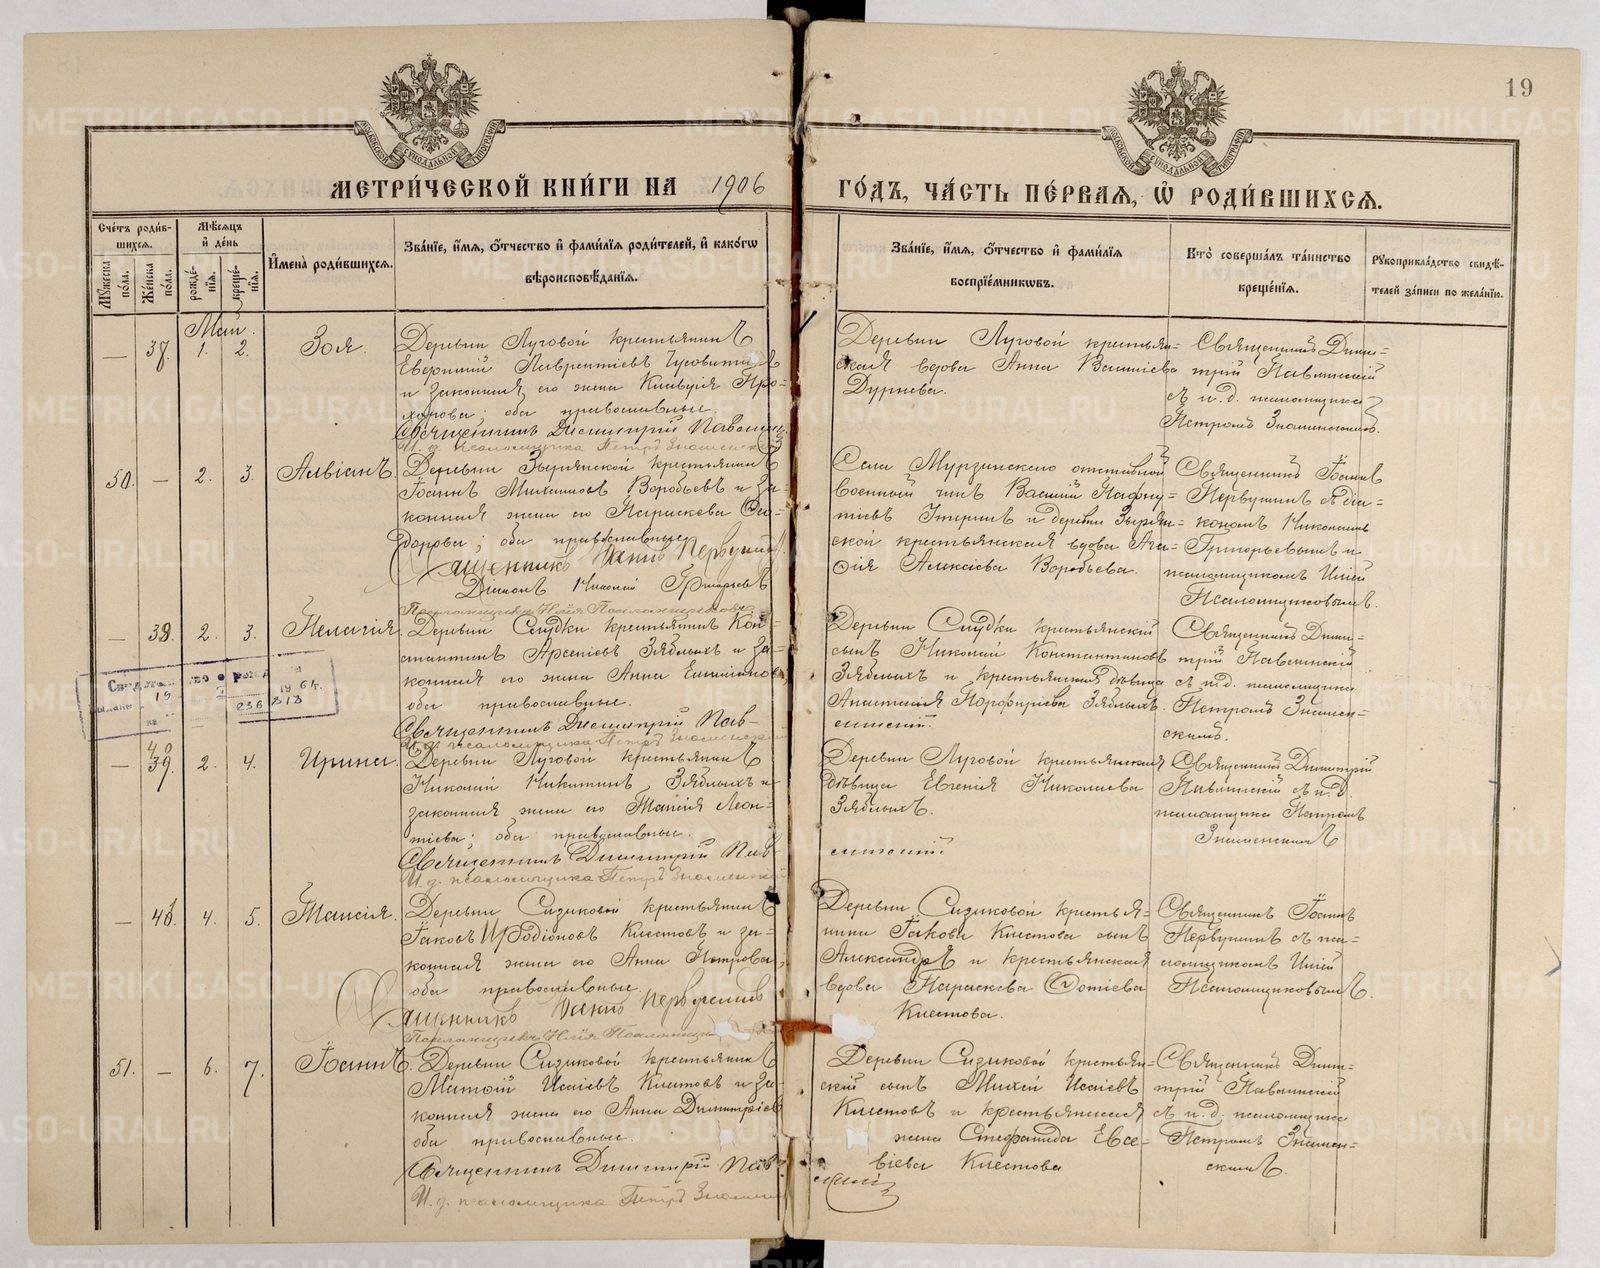 19
МОСКОВСКОЙ СУНОДАЛЬНОЙ ТИПОГРАФІИ
МОСКОВСКОЙ СУНОДАЛЬНОЙ ТИПОГРАФІИ
МЕТРИ́ЧЕСКОЙ КНИ́ГИ НА 1906 ГО́ДЪ, ЧА́СТЬ ПЕ́РВАѦ, Ѡ҆ РОДИ́ВШИХСѦ.
Сче́тъ роди́в-
шихсѧ.
Мꙋжеска по́ла.
Же́нска по́ла.
Мѣ́сѧцъ
и҆ де́нь
рожде́-
нїѧ.
креще́-
нїѧ.
И҆мена̀ роди́вшихсѧ.
Зва́нїе, и҆́мѧ, ѻ҆́тчество и҆ фами́лїѧ роди́телей, и҆ како́гѡ
вѣроисповѣ́данїѧ.
Зва́нїе, и҆́мѧ, ѻ҆́тчество и҆ фами́лїѧ
воспрїе́мникѡвъ.
Кто̀ соверша́лъ та́инство
креще́нїѧ.
Рꙋкоприкла́дство свидѣ́-
телей за́писи по жела́нїю.
Май.
— 37. 1. 2. Зоя.
Деревни Луговой крестьянинъ
Лаврентіевъ
и законная его жена Клавдія Про-
хорова; оба православные.
Священникъ Димитрій Павлинскій
И. д. псаломщика Петръ Знаменскій
Деревни Луговой крестьян-
ская вдова Анна Васильева
Дурнева.
Священникъ Дими-
трій Павлинскій
съ и. д. псаломщика
Петромъ Знаменскимъ.
50. — 2. 3. Алвіанъ.
Деревни Зырянской крестьянинъ
Іоаннъ Михаиловъ Воробьевъ и за-
конная жена его Параскева Ѳео-
дорова; оба православные.
Священникъ Іоаннъ Первушинъ
Діаконъ Николай Григорьевъ
Псаломщикъ Илія Псаломщиковъ
Села Мурзинскаго отставной
военный чинъ Василій Пафну-
тіевъ и деревни Зырян-
ской крестьянская вдова Ага-
фія Алексіева Воробьева.
Священникъ Іоаннъ
Первушинъ съ діа-
кономъ Николаемъ
Григорьевымъ и
псаломщикомъ Иліей
Псаломщиковымъ.
— 38. 2. 3. Пелагія.
Деревни Слудки крестьянинъ Кон-
стантинъ Арсеніевъ Зяблыхъ и за-
конная его жена Анна
оба православные.
Священникъ Димитрій Пав-
И. д. псаломщика Петръ Знаменскій
Деревни Слудки крестьянскій
сынъ Николай Константиновъ
Зяблыхъ и крестьянская дѣвица
Анастасія Порфиріева Зяблыхъ.
линскій.
Священникъ Дими-
трій Павлинскій
съ и. д. псаломщика
Петромъ Знамен-
скимъ.
Свидетельство о рожд
19 7 1961г.
236 818
— 39. 2. 4. Ирина.
Деревни Луговой крестьянинъ
Николай Никитинъ Зяблыхъ и
законная жена его Таисія Леон-
тіева; оба православные.
Священникъ Димитрій Пав-
И. д. псаломщика Петръ Знаменскій
Деревни Луговой крестьянская
дѣвица Евгенія Николаева
Зяблыхъ.
линскій.
Священникъ Димитрій
Павлинскій съ и. д.
псаломщика Петромъ
Знаменскимъ
— 4. 5. Таисія.
Деревни Сизиковой крестьянинъ
Іаковъ Иродіоновъ Клестовъ и за-
конная жена его Анна Петрова,
оба православные.
Священникъ Іоаннъ Первушинъ
Псаломщикъ Илія
Деревни Сизиковой крестья-
нина Іакова Клестова сынъ
Александръ и крестьянская
вдова Параскева Фотіева
Клестова.
Священникъ Іоаннъ
Первушинъ съ пса-
ломщикомъ Иліей
Псаломщиковымъ.
51. — 6. 7. Іоаннъ.
Деревни Сизиковой крестьянинъ
Матфій Исаіевъ Клестовъ и за-
конная жена его Анна Димитріева
оба православные.
Священникъ Димитрій Пав-
И. д. псаломщика Петръ
Деревни Сизиковой крестьян-
скій сынъ Михей Исаіевъ
Клестовъ и крестьянская
жена Стефанида Евсе-
віева Клестова
линскій
Священникъ Дими-
трій Павлинскій
съ и. д. псаломщика
Петромъ Знамен-
скимъ.
METRIKI.GASO-URAL.RU